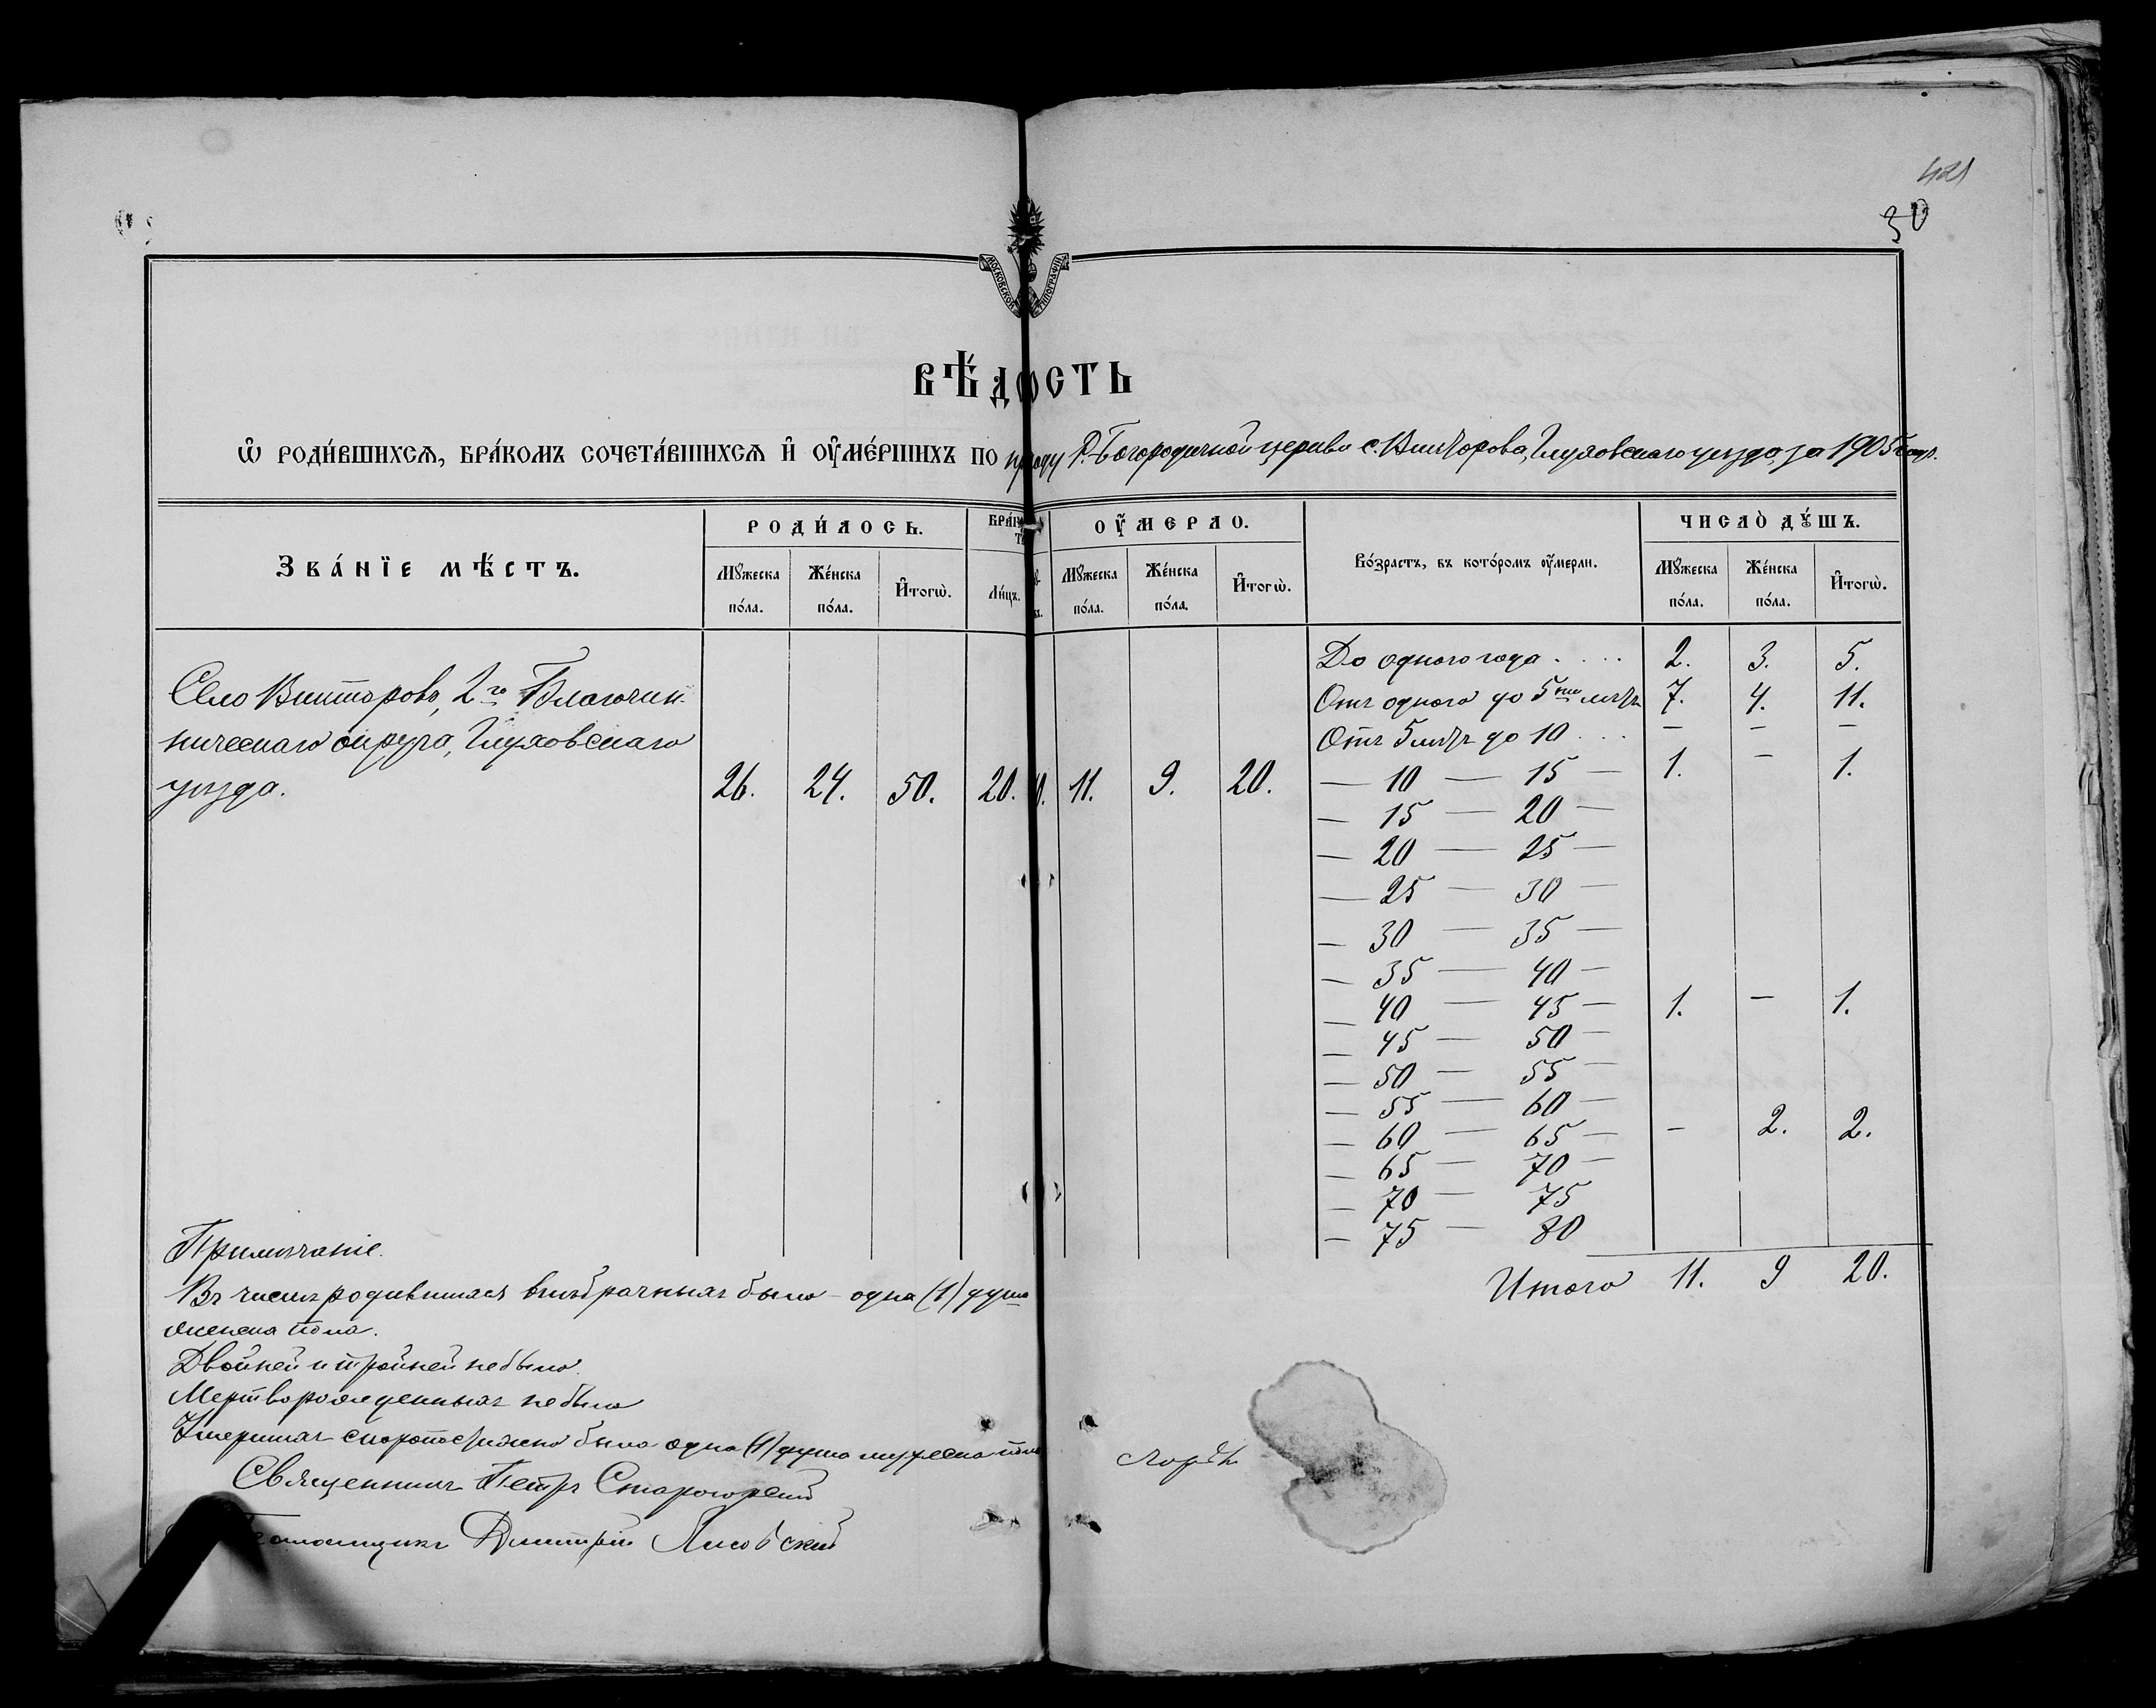 421
30
МОСКОВСКОЙ ТИПОГРАФІИ
ВѢ́ДОСТЬ
Ѡ҆ РОДИ́ВШИХСѦ, БРА́КОМЪ СОЧЕТА́ВШИХСѦ И҆ ОУ҆МЕ́РШИХЪ ПО приходу Р. Богородичной церкви с. Викторова, Глуховскаго уѣзда, за 1905 годъ.
ЗВА́НЇЕ МѢ́СТЪ.
РОДИ́ЛОСЬ.
ОУ҆́МЕРЛО.
Во́зрастъ, въ кото́ромъ оу҆́мерли.
ЧИСЛО̀ ДꙊ́ШЪ.
Мꙋ́жеска пола. Же́нска по́ла. И҆тогѡ̀. Ли́цъ. Мꙋ́жеска по́ла. Же́нска по́ла. И҆тогѡ̀. Мꙋ́жеска по́ла. Же́нска по́ла. И҆тогѡ̀.
Село Викторовъ, 2го Благочин-
ническаго округа, Глуховскаго
уѣзда.
26. 24. 50. 20. 11. 9. 20.
До одного года . . . . 2. 3. 5.
Отъ одного до 5ти лѣтъ 7. 4. 11.
Отъ 5 лѣтъ до 10 . . . — — —
— 10 — 15 — 1. — 1.
— 15 — 20 —
— 20 — 25 —
— 25 — 30 —
— 30 — 35 —
— 35 — 40 —
— 40 — 45 — 1. — 1.
— 45 — 50 —
— 50 — 55 —
— 55 — 60 —
— 60 — 65 — — 2. 2.
— 65 — 70 —
— 70 — 75
— 75 — 80
Итого 11. 9 20.
Примѣчаніе.
Въ числѣ родившихся внѣбрачныхъ было – одна (1) душа
женска пола.
Двойней и тройней не было.
Мертворожденныхъ не было
Умершихъ скоропостижно была одна (1) душа мужеска пола
Священникъ Петръ Старогорскій
Псаломщикъ Дмитрій Лисовскій